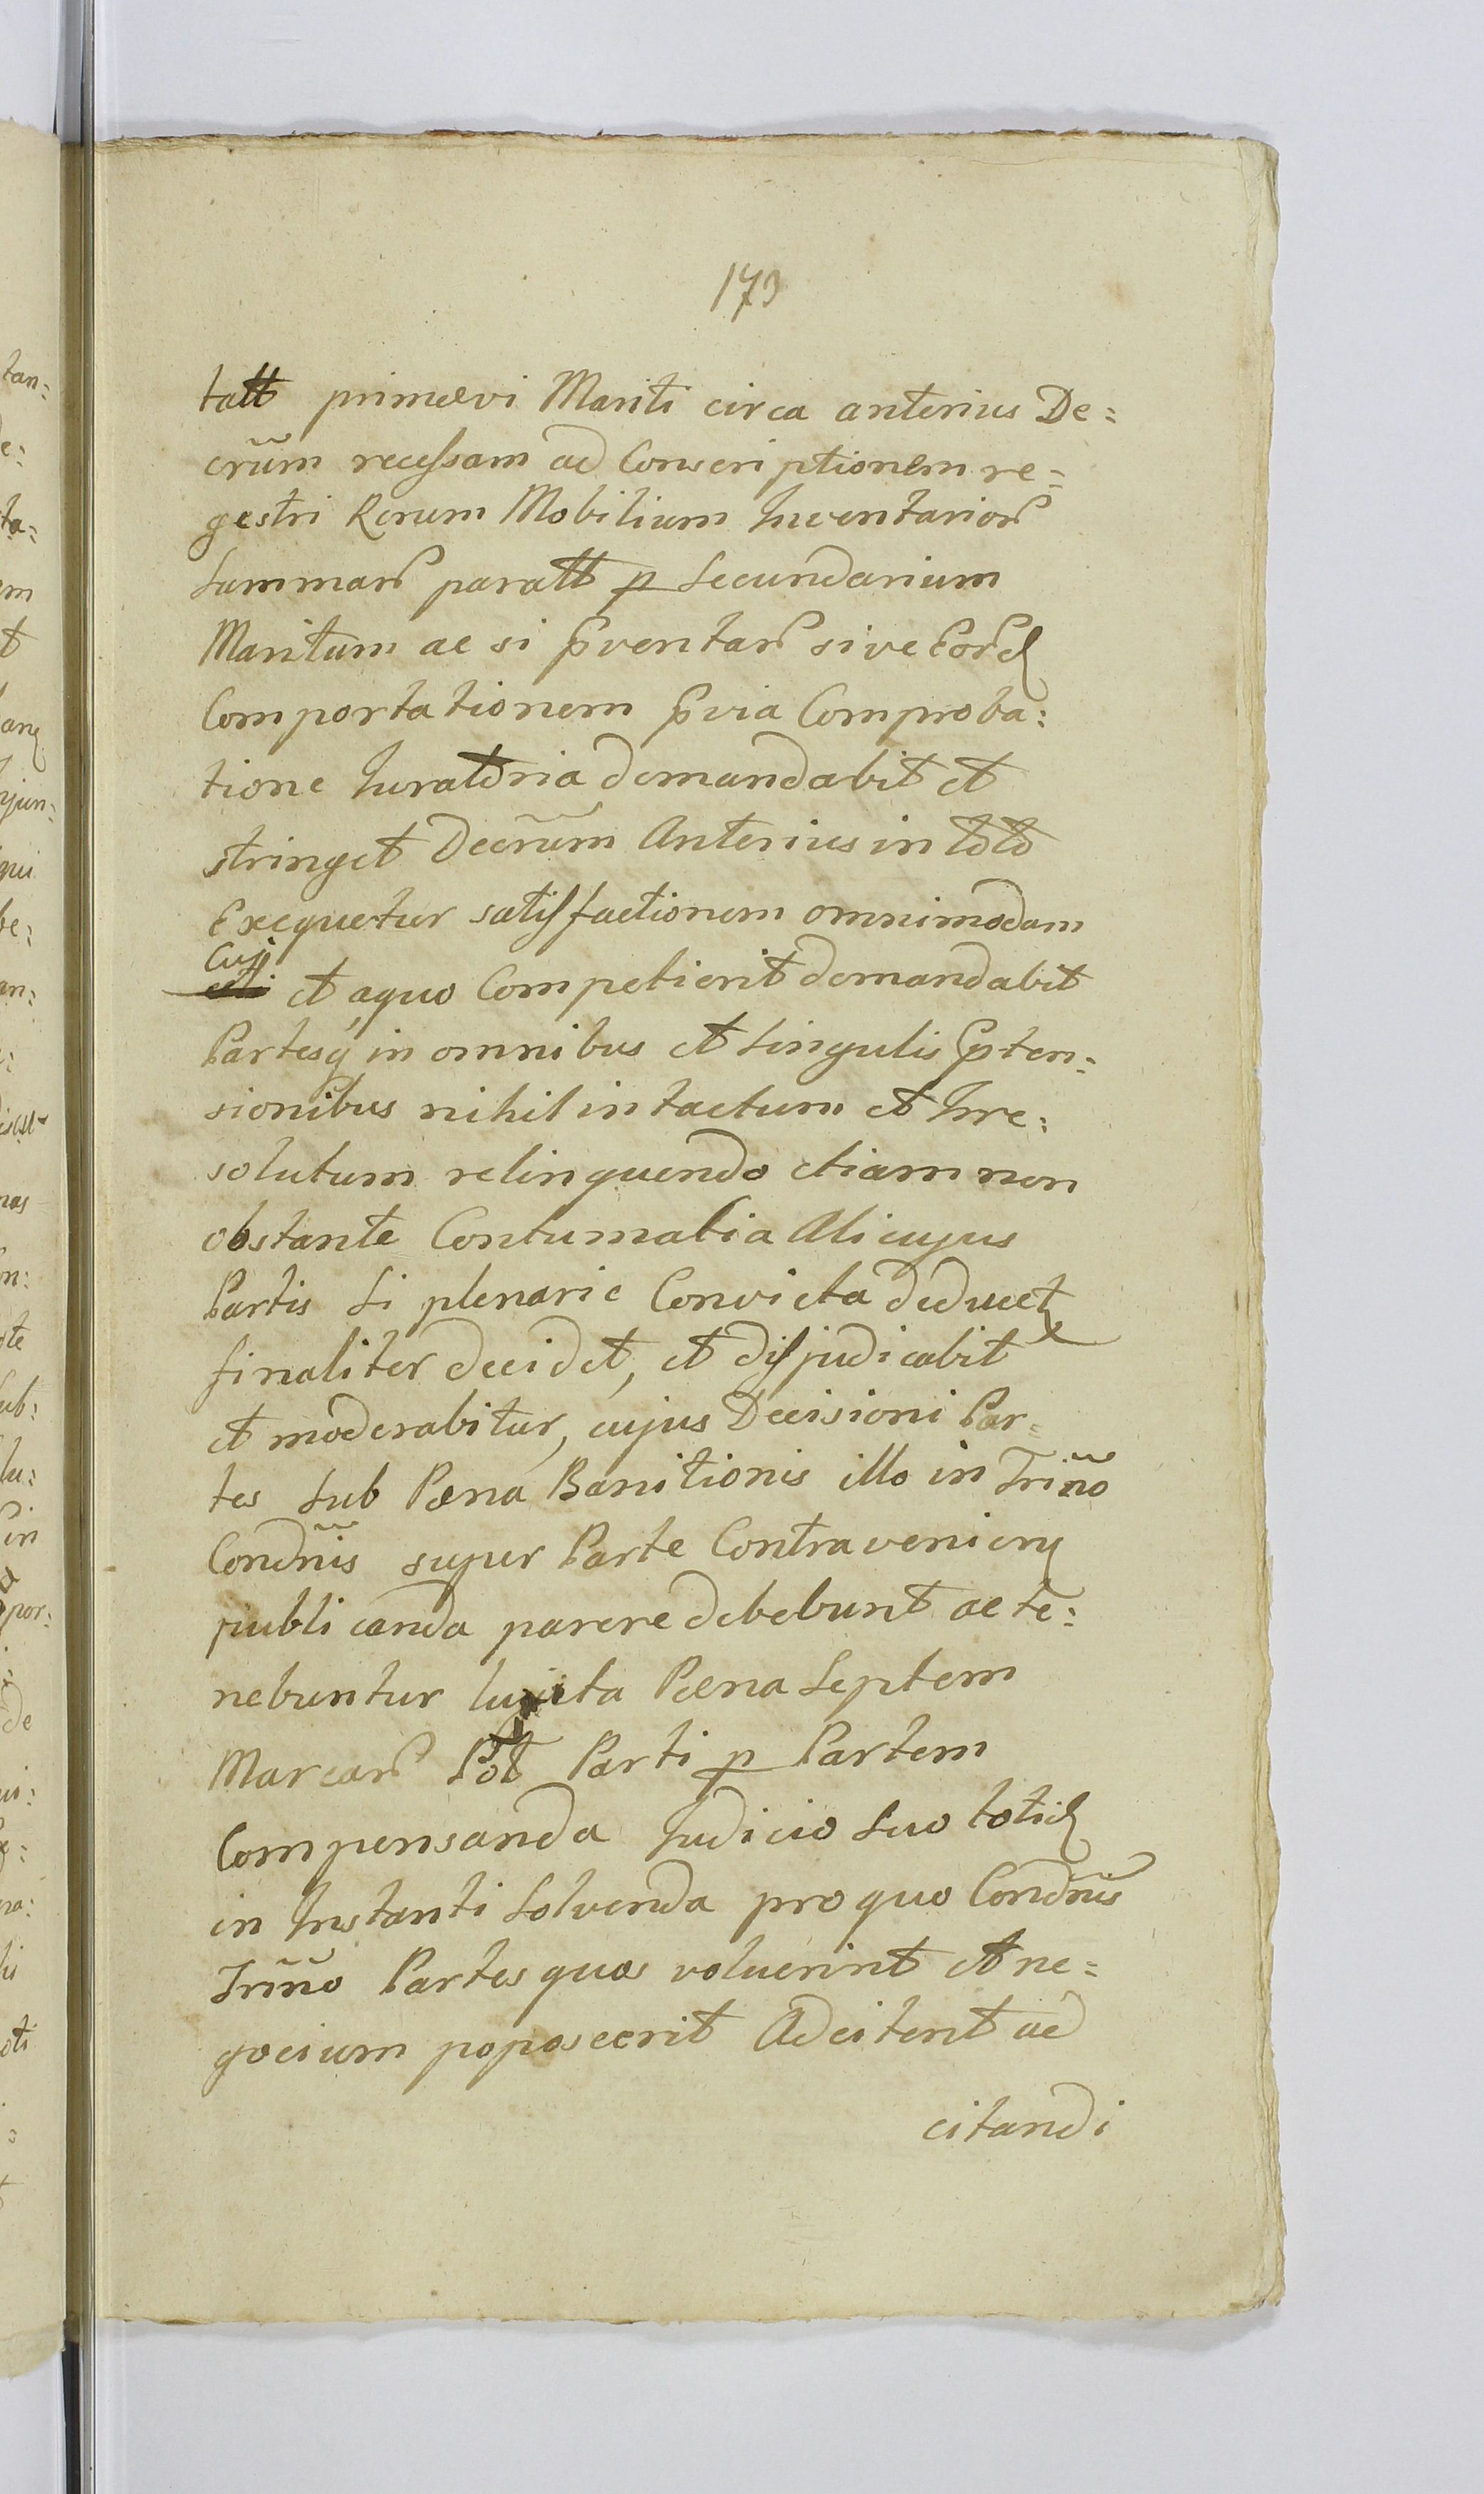 173
tatt primaevi Mariti circa anterius De=
crũm recessam ad Conscriptionem re=
gestri Rerum Mobilium Inventarior
summar paratt p secundarium
Maritum ac si pventar sive eord
Comportationem pvia Comproba:
tione Iuratoria demandabit et
stringet Decrũm Anterius in toto
Exequetur satisfactionem omnimodam
Cuj
et aquo Competierit demandabit
Partesq in omnibus et singulis pten=
sionibus nihil intactum et Irre:
solutum relinquendo etiam non
obstante Contumatia Alicujus
Partis si plenarie Convicta deducet
finaliter decidet, et disjudicabit
et moderabitur, cujus Decisioni Par=
tes sub Paena Banitionis illo in Trĩno
Condñis super Parte Contravenien
publicanda parere debebunt ac te:
nebuntur luita Paena Septem
Marcar Pol Parti p Partem
Compensanda Iudicio suo totid
in Instanti solvenda pro quo Condñis
Trĩno Partes quas voluerint et ne=
gocium poposcerit Adcitent ad
citandi